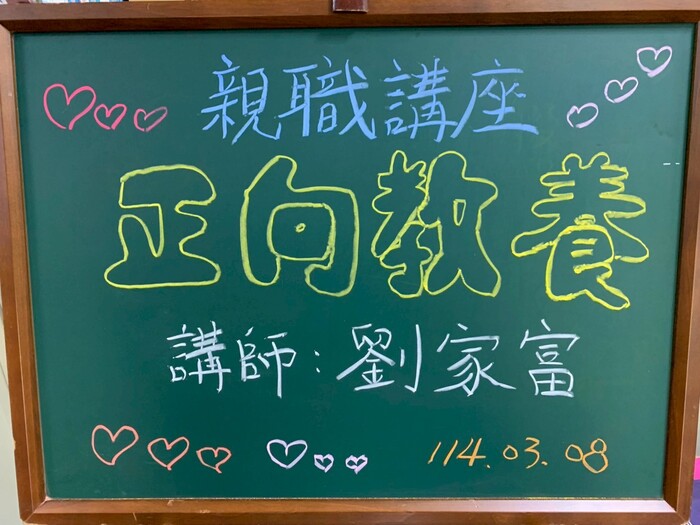 親職講座
正向教養
講師:劉家富
114.03.08